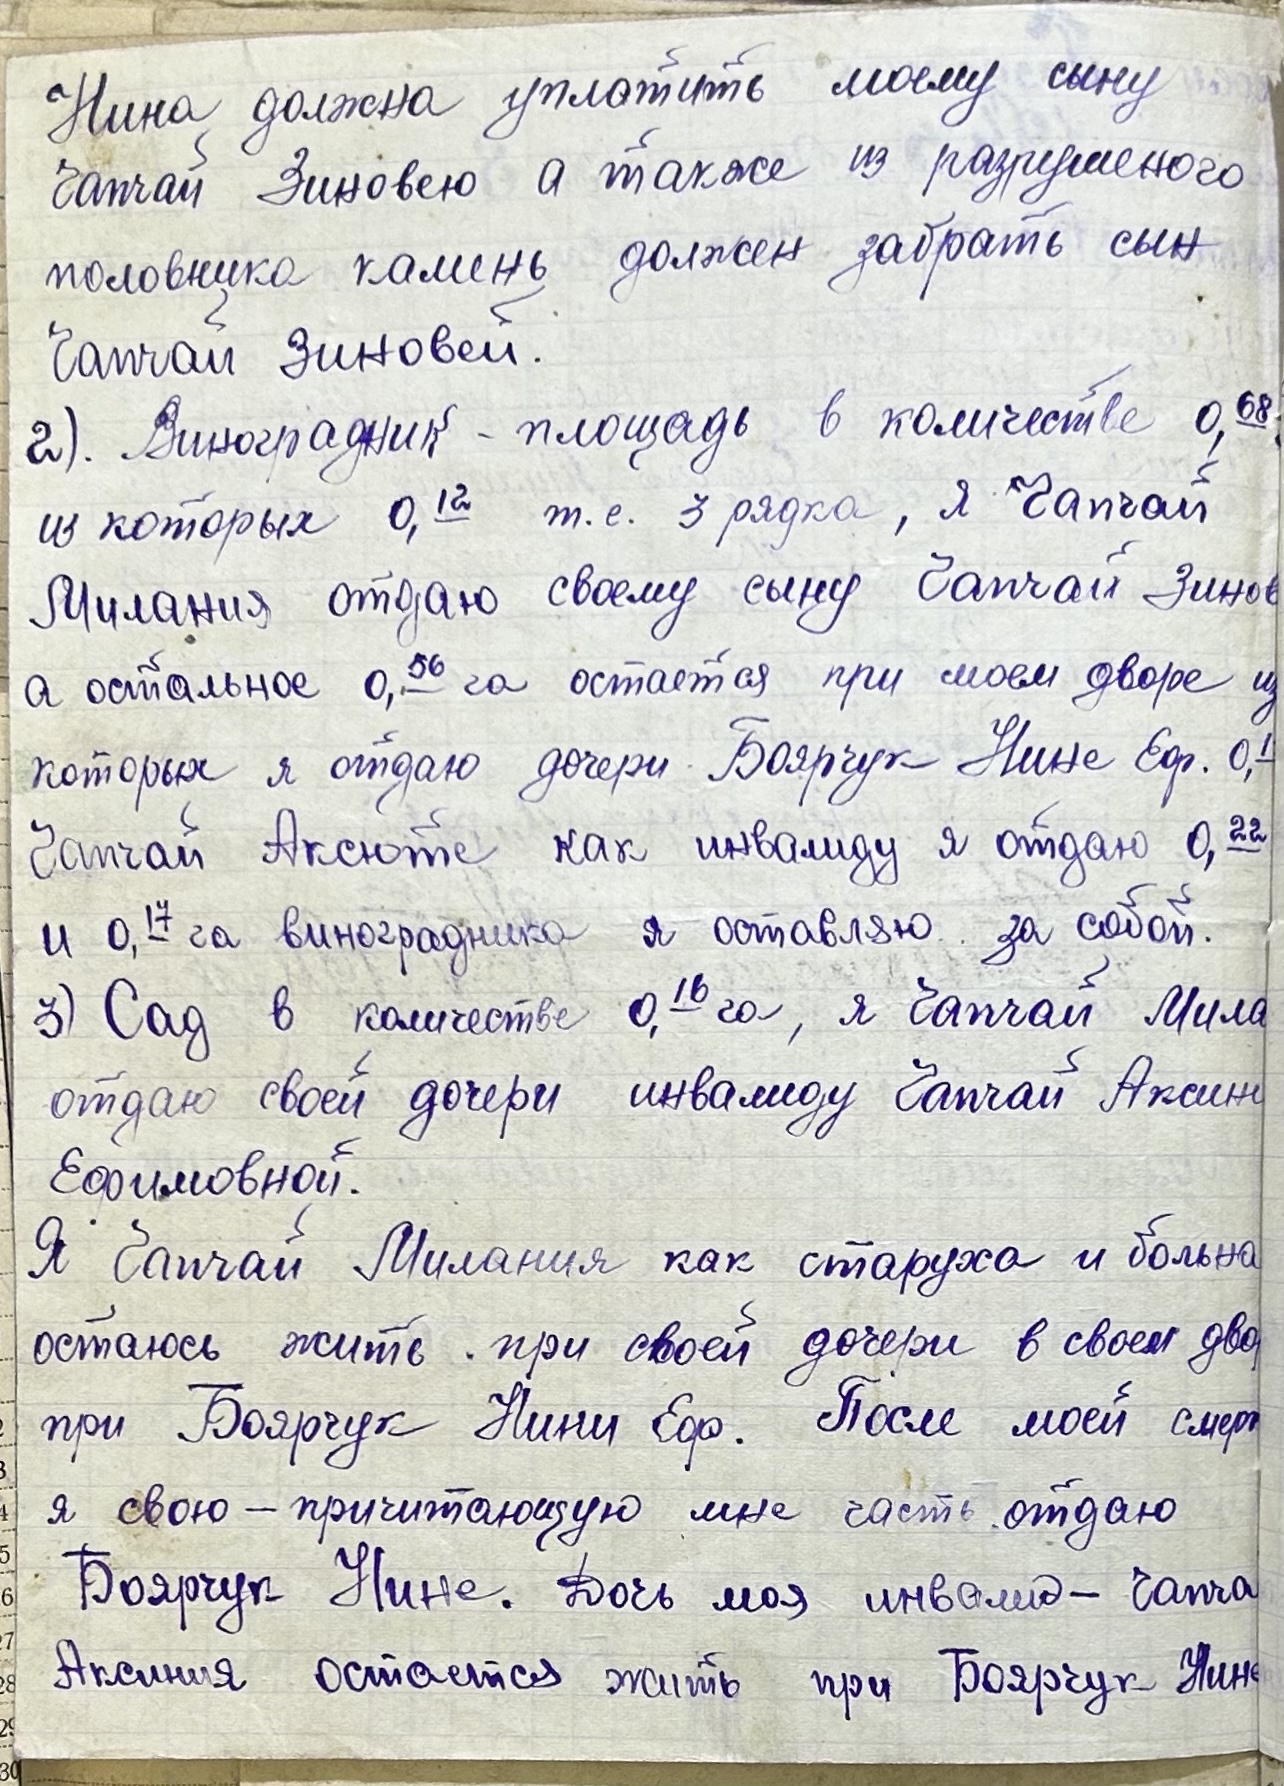 Нина должна уплатить моему сыну
Чапчай Зиновею а также из разрушеного
половника камень должен забрать сын
Чапчай Зиновей.
2). Виноградник - площадь в количестве 0,68
из которых 0,12 т.е. 3 рядка, я Чапчай
Милания отдаю своему сыну Чапчай Зинов
а остальное 0,56 га остается при моем дворе из
которых я отдаю дочери Боярчук Нине Еф. 0,1
Чапчай Аксюте как инвалиду я отдаю 0,22
и 0,17 га виноградника я оставляю за собой.
3) Сад в количестве 0,16 га, я Чапчай Мила
отдаю своей дочери инвалиду Чапчай Аксин
Ефимовной.
Я Чапчай Милания как старуха и больна
остаюсь жить при своей дочери в своем дво
при Боярчук Нини Еф. После моей смерт
я свою – причитающую мне часть отдаю
Боярчук Нине. Дочь моя инвалид – Чапча
Аксиния остается жить при Боярчук Нине